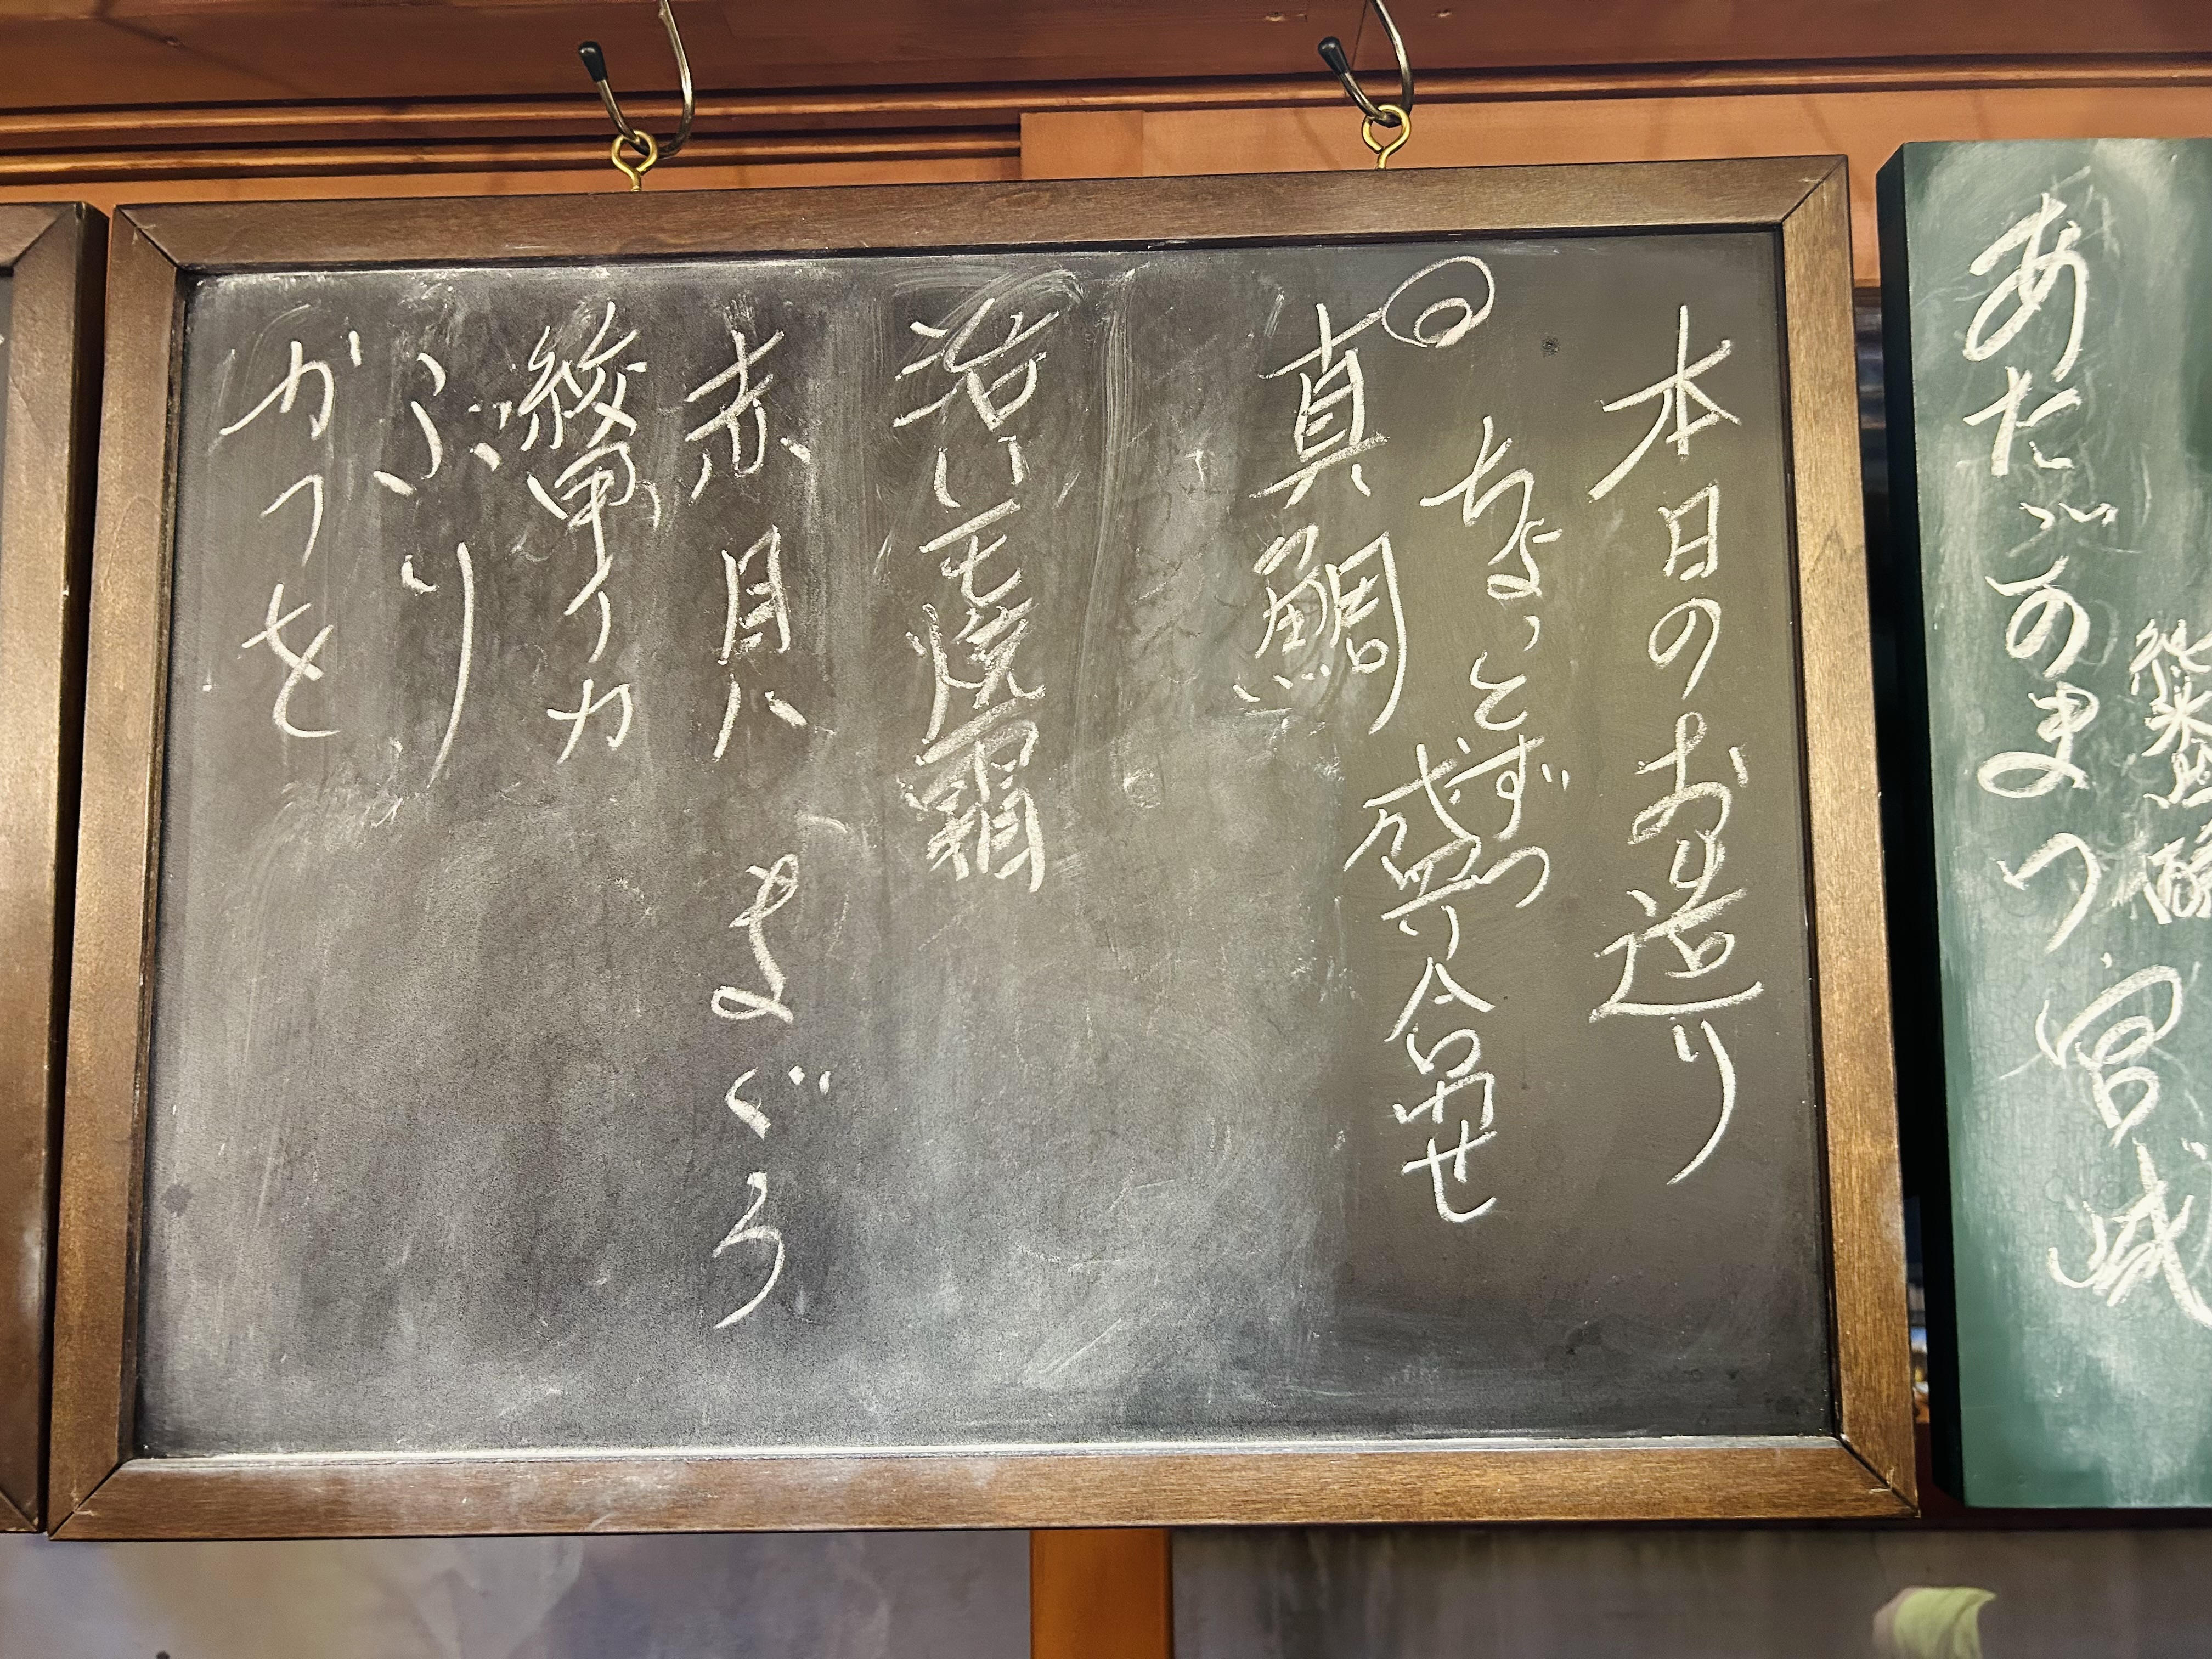 純米吟醸
あたごのまつ 宮城
本日のお造り
◎ちょっとずつ盛り合わせ
真鯛
活ハモ焼霜
赤貝 まぐろ
紋甲イカ
ぶり
かつを